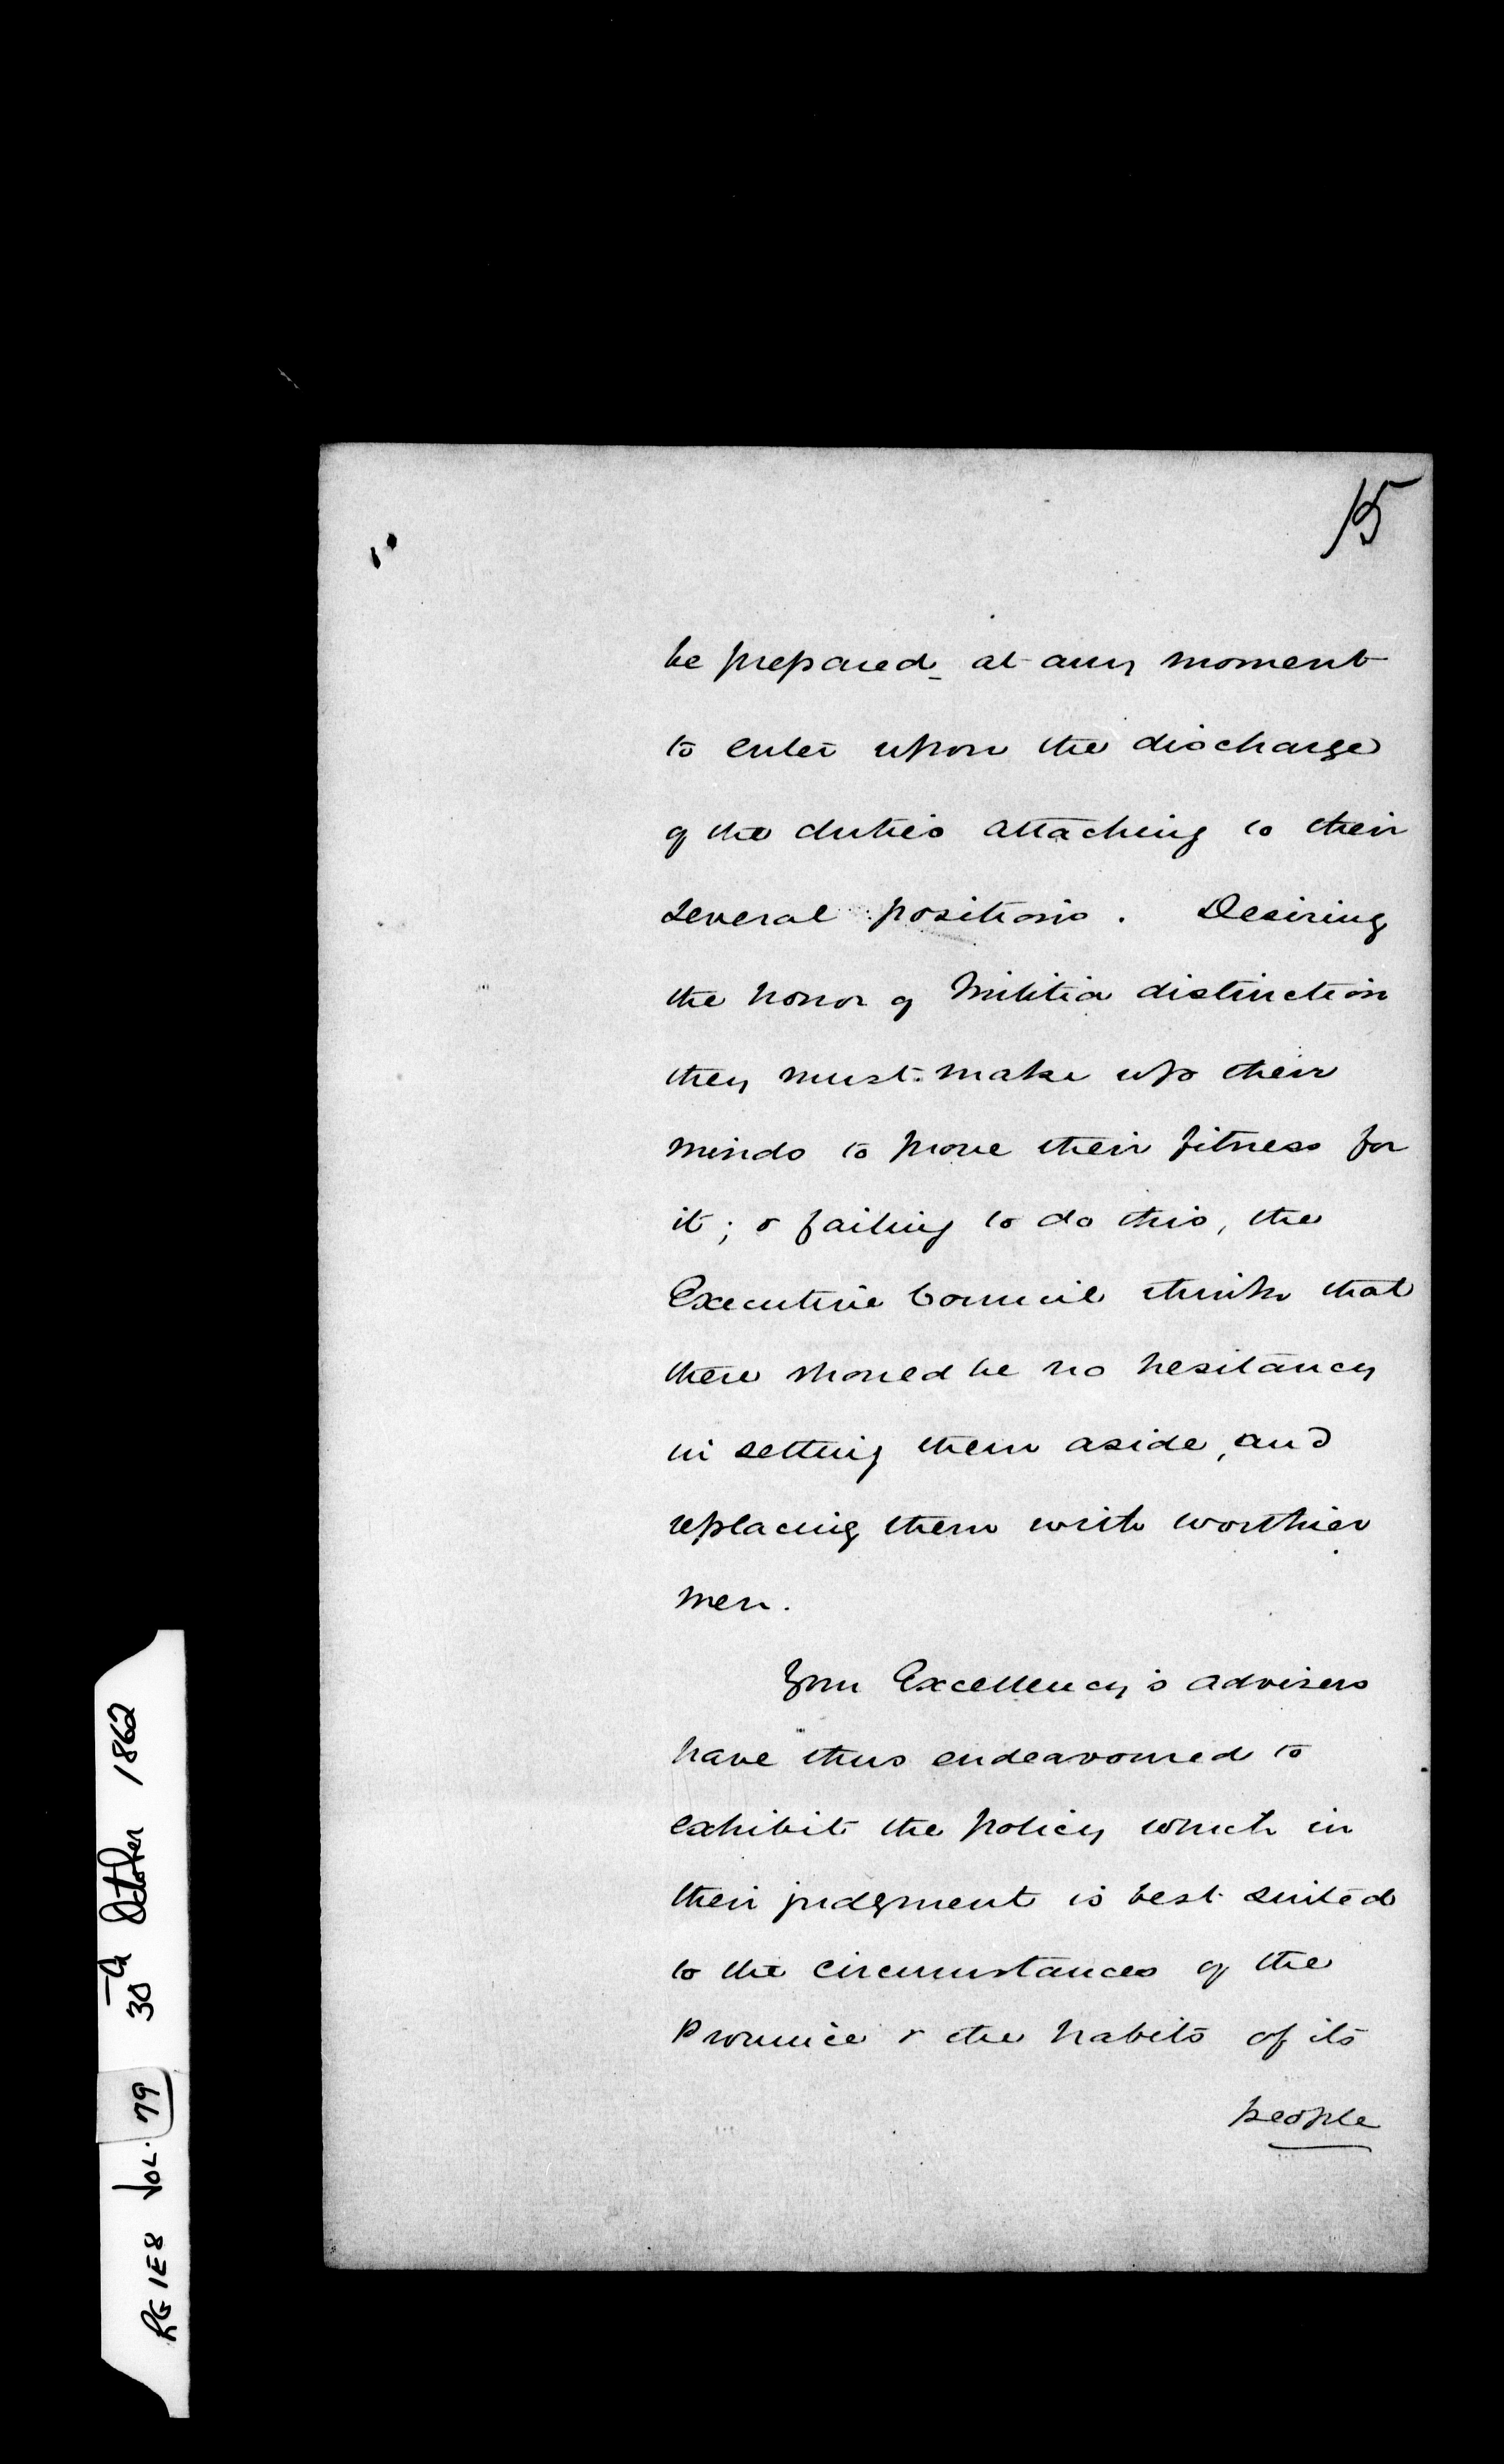 15
be prepared at any moment
to enter upon the discharge
of the duties attaching to their
several positions. Desiring
the honor of Militia distinction
they must make up their
minds to prove their fitness for
it; & failing to do this, the
Executive Council think that
there should be no hesitancy
in setting them aside, and
replacing them with worthier
men.
Your Excellency's advisers
have thus endeavoured to
exhibit the policy which in
their judgment is best suited
to the circumstances of the
Province & the habits of its
people
RG 1E8 VOL. 79 30th October 1862